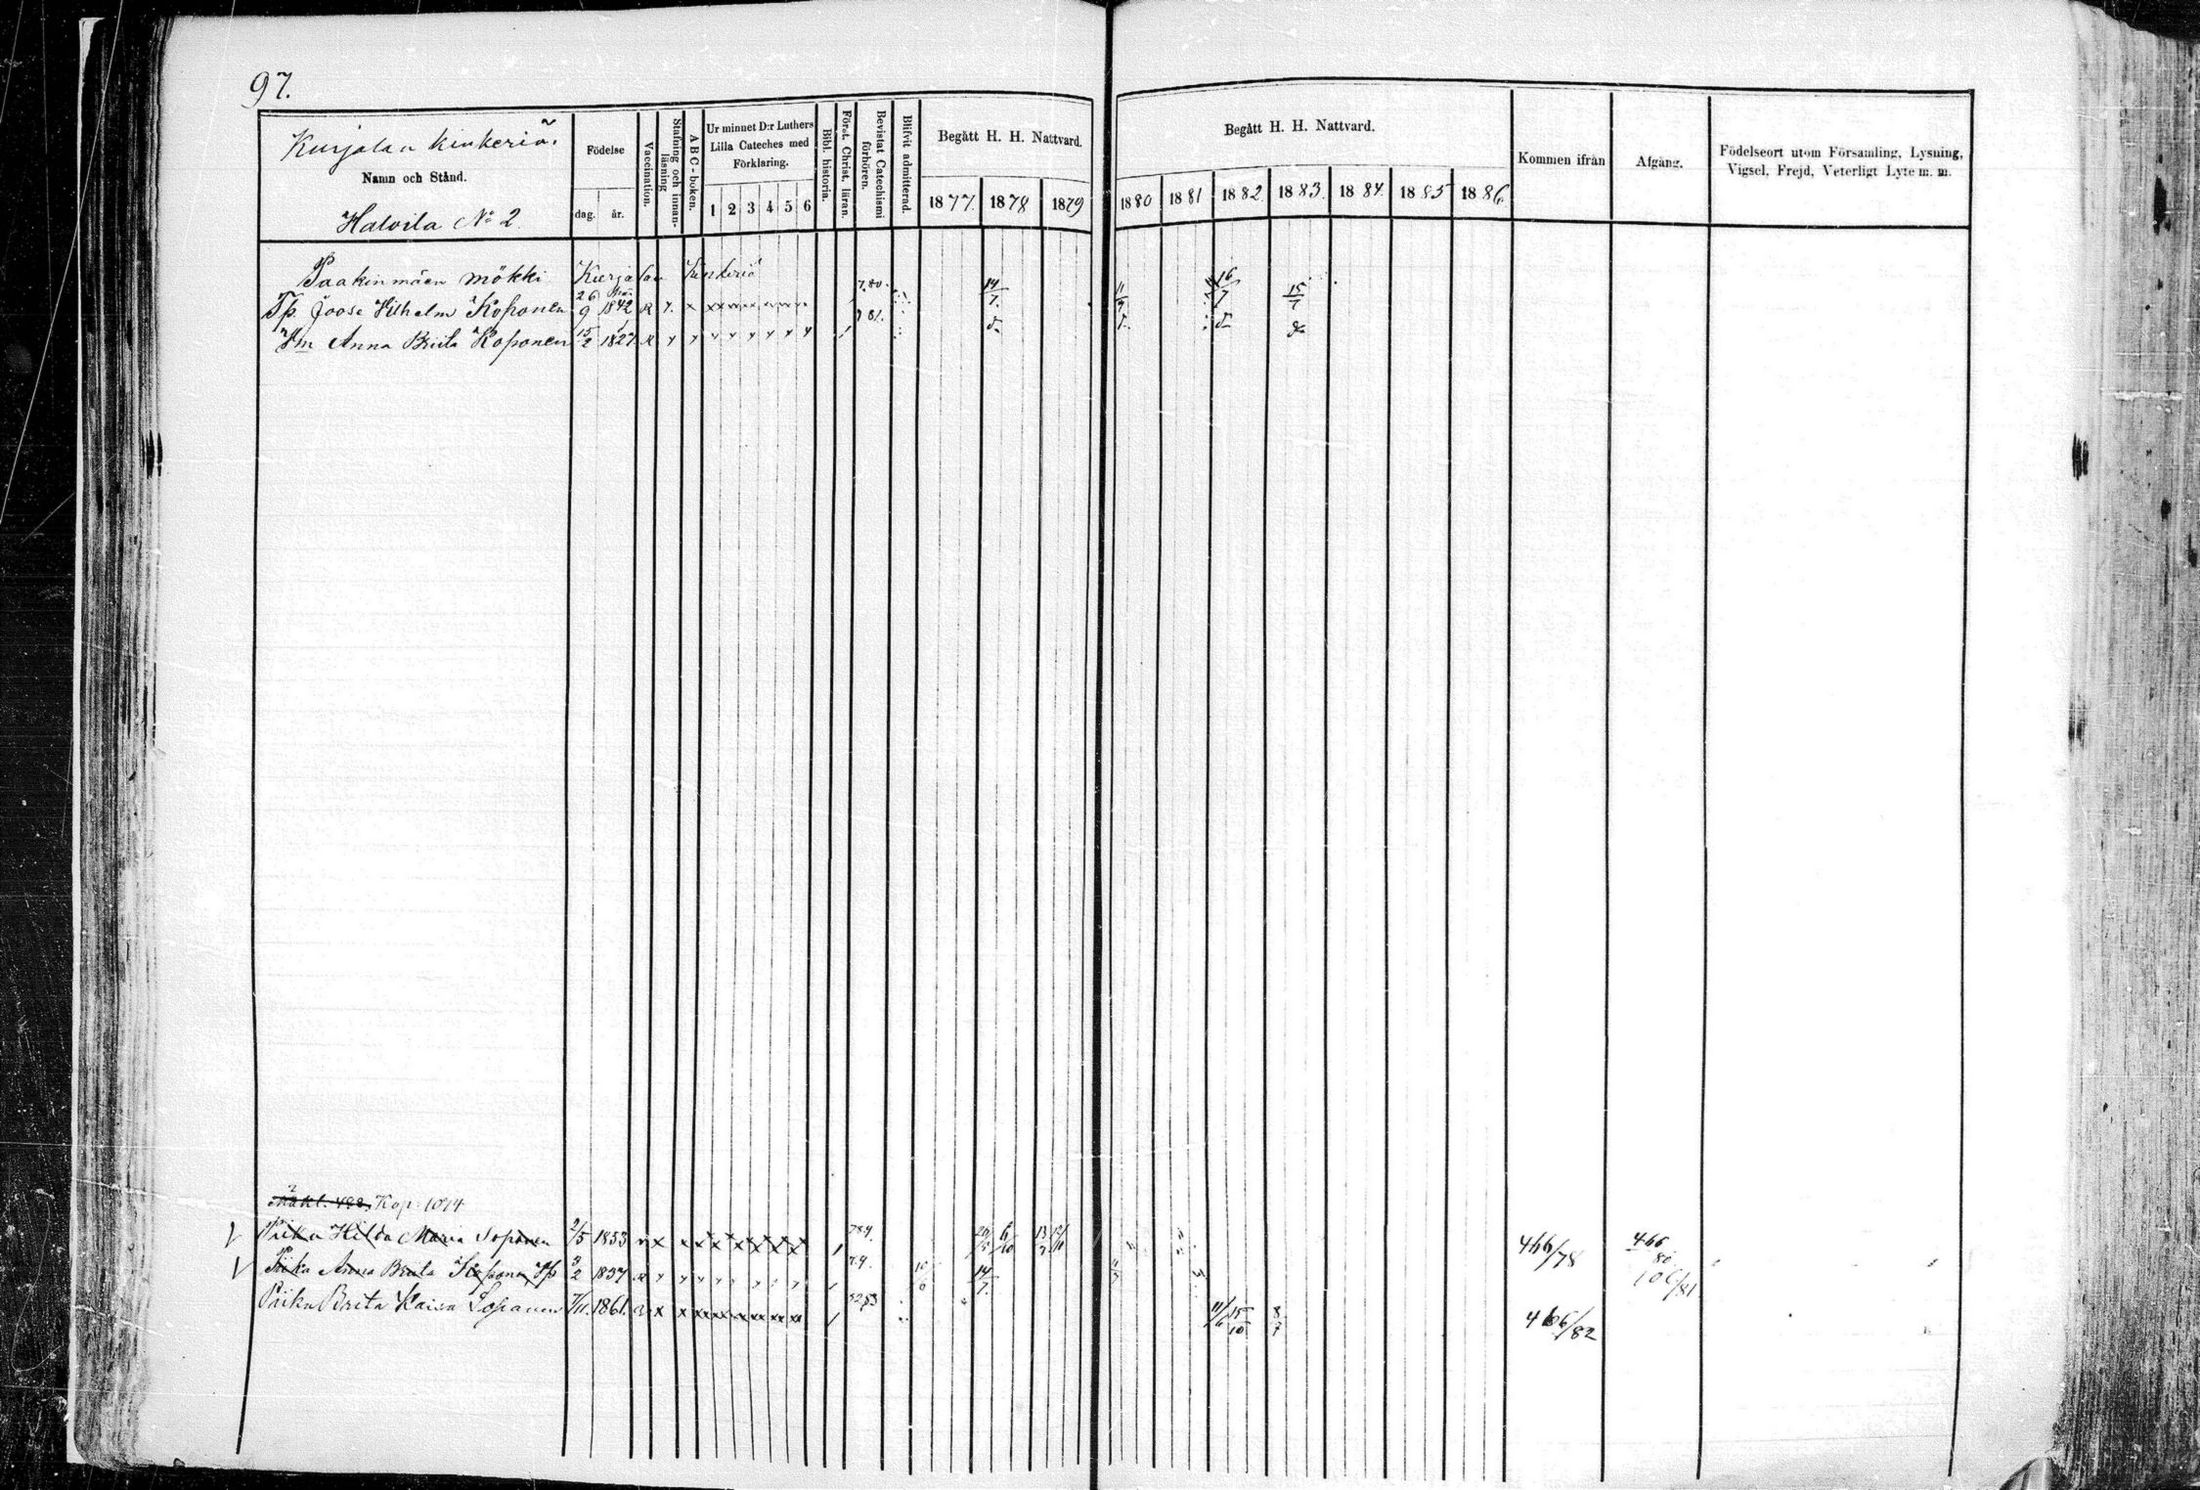 97.
Kurjalan kinkeriä.
Namn och Stånd.
Halvila No 2.
Födelse
dag. år.
Vaccination.
Stafning och innan-läsning
ABC-boken.
Ur minnet D:r Luthers
Lilla Cateches med
Förklaring.
1 2 3 4 5 6
Bibl. historia.
Först. Christ. läran.
Bevistat Catechismi förhören.
Blifvit admitterad.
Begått H. H. Nattvard.
1877. 1878 1879
Begått H. H. Nattvard.
1880 1881 1882. 1883. 1884. 1885 1886.
Kommen ifrån
Afgång.
Födelseort utom Församling, Lysning,
Vigsel, Frejd, Veterligt Lyte m. m.
Paakinmäen mökki Kurjalan kinkeriä
Tp. Joose Vilhelm Koponen 26/9 1842 14/7. 11/7 16/7 15/7
Hm Anna Briita Koponen 15/2 1827 81. do do do
Kop. 1074
Piika Hilda Maria Soponen 2/5 1853 784. 6/10 466/78 466/80
Piika Anna Briita Koponen 3/2 1857 79. 14/7. 106/81
Piika Brita Kaisa Soponen 7/11. 1861. 82 83 11/6 15/10 8/7 466/82